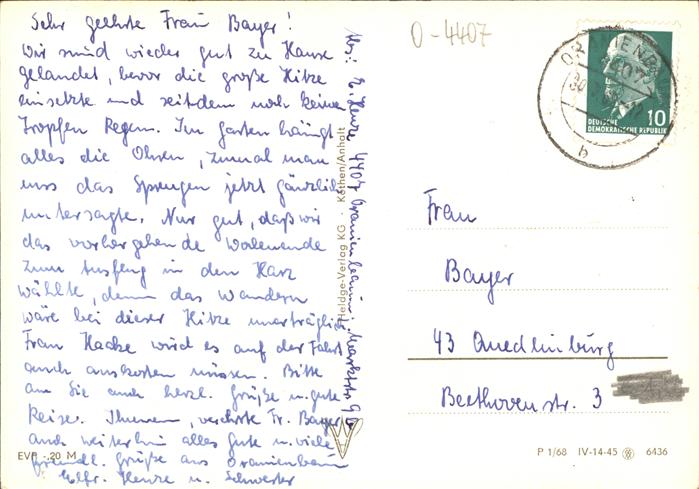 Sehr geehrte Frau Bayer!
Wir sind wieder gut zu Hause
gelandet, bevor die große Hitze
einsetzte und seitdem noch keinen
Tropfen Regen. Im Garten hängt
alles die Ohren, zumal man
uns das Sprengen jetzt gänzlich
untersagte. Nur gut, daß wir
das vorhergehende Wochenende
zum Ausflug in den Harz
wählte, denn das Wandern
wäre bei dieser Hitze unerträglich.
Frau Hacke wird es auf der Fahrt
auch auskosten müssen. Bitte
an Sie auch herzl. Grüße u. gute
Reise. Ihnen, verehrte Fr. Bayer
auch weiterhin alles Gute u. viele
freundl. Grüße aus Oranienbaum
Elfr. Henze u. Schwester
Abs: E. Henze 4407 Oranienbaum Markstr. 9
Heldge-Verlag KG · Köthen/Anhalt
EVP -,20 M
O-4407
ORANIENBAUM
4407
b
10
DEUTSCHE
DEMOKRATISCHE REPUBLIK
Frau
Bayer
43 Quedlinburg
Beethovenstr. 3
P 1/68 IV-14-45 6436